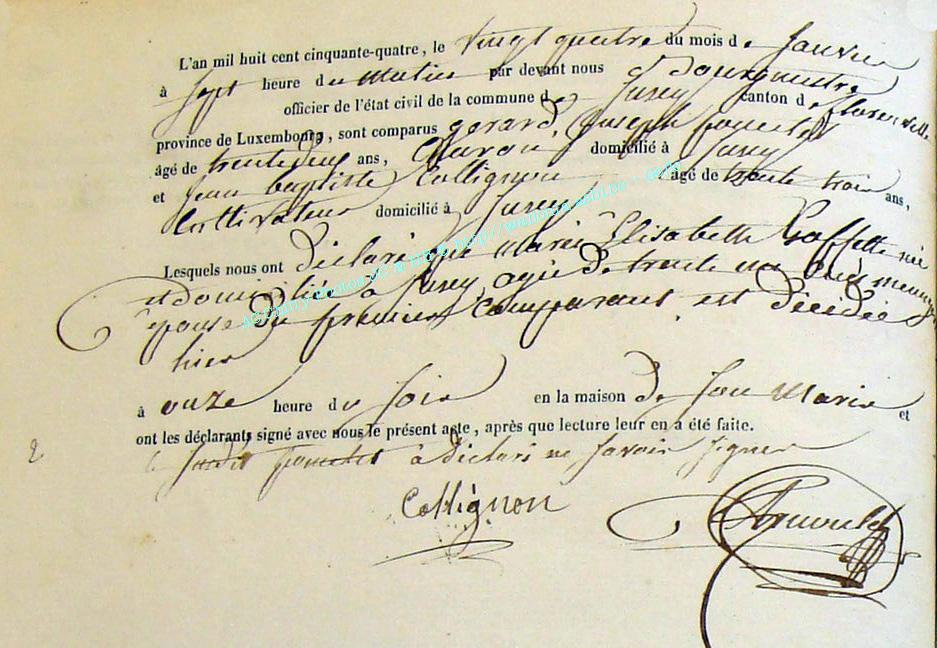 L'an mil huit cent cinquante-quatre, le vingt quatre du mois de janvier
à sept heure du matin par devant nous Bourgmestre
officier de l'état civil de la commune de Suxy canton de florenville
province de Luxembourg, sont comparus gerard, Joseph
âgé de trente deux ans, domicilié à Suxy
et jean baptiste Collignon âgé de trente trois ans,
Cultivateur domicilié à Suxy
Lesquels nous ont déclaré que Marie Elisabette Goffette née
et domiciliée à Suxy, agée de trente un ans, menagère
épouse du premier comparant est décédée
hier
à onze heure du soir en la maison de son Marie et
ont les déclarants signé avec nous le présent acte, après que lecture leur en a été faite.
le susdit à déclaré ne savoir signer
Collignon